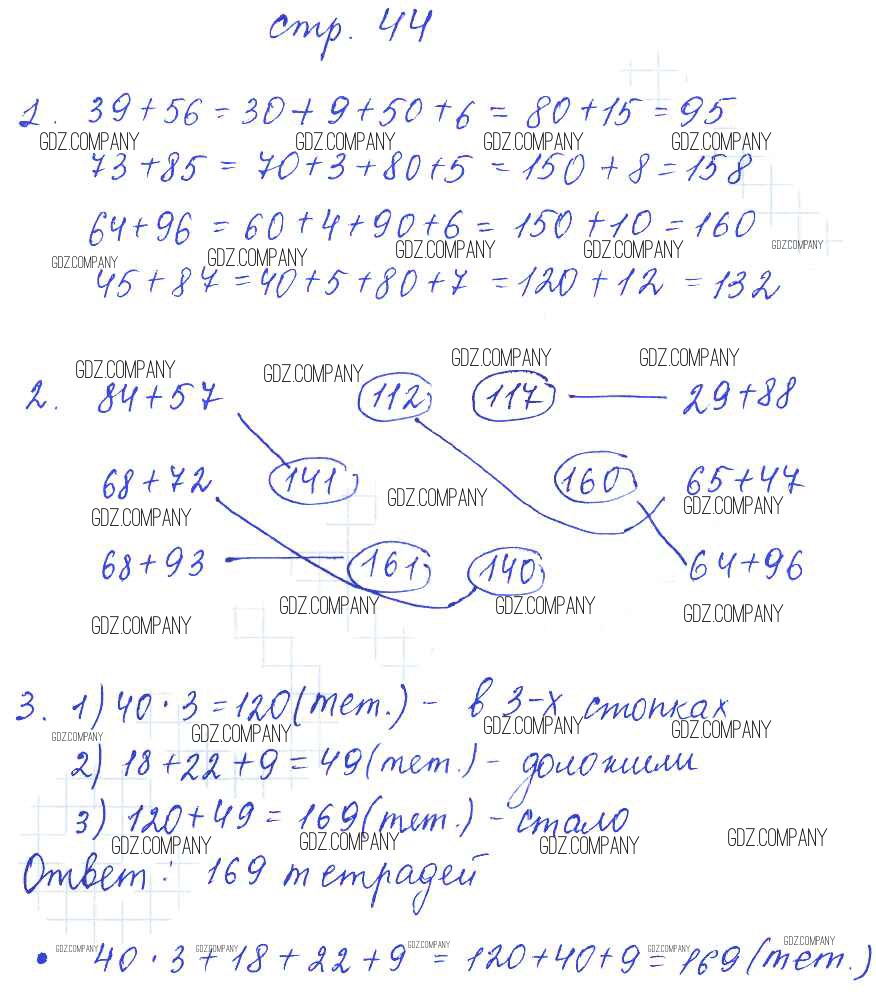 стр. 44
1. 39+56 = 30+9+50+6 = 80+15 = 95
GDZ.COMPANY GDZ.COMPANY GDZ.COMPANY GDZ.COMPANY
73+85 = 70+3+80+5 = 150+8 = 158
64+96 = 60+4+90+6 = 150+10 = 160
GDZ.COMPANY GDZ.COMPANY GDZ.COMPANY GDZ.COMPANY GDZ.COMPANY
45+87 = 40+5+80+7 = 120+12 = 132
GDZ.COMPANY GDZ.COMPANY GDZ.COMPANY GDZ.COMPANY
2. 84+57 112 117 29+88
68+72 141 160 65+47
GDZ.COMPANY GDZ.COMPANY GDZ.COMPANY
68+93 161 140 64+96
GDZ.COMPANY GDZ.COMPANY GDZ.COMPANY GDZ.COMPANY
3. 1) 40·3=120 (тет.) - в 3-х стопках
GDZ.COMPANY GDZ.COMPANY GDZ.COMPANY GDZ.COMPANY
2) 18+22+9=49 (тет.) - доложили
3) 120+49=169 (тет.) - стало
GDZ.COMPANY GDZ.COMPANY GDZ.COMPANY GDZ.COMPANY
Ответ: 169 тетрадей
GDZ.COMPANY GDZ.COMPANY GDZ.COMPANY GDZ.COMPANY GDZ.COMPANY
• 40·3+18+22+9 = 120+40+9=169 (тет.)